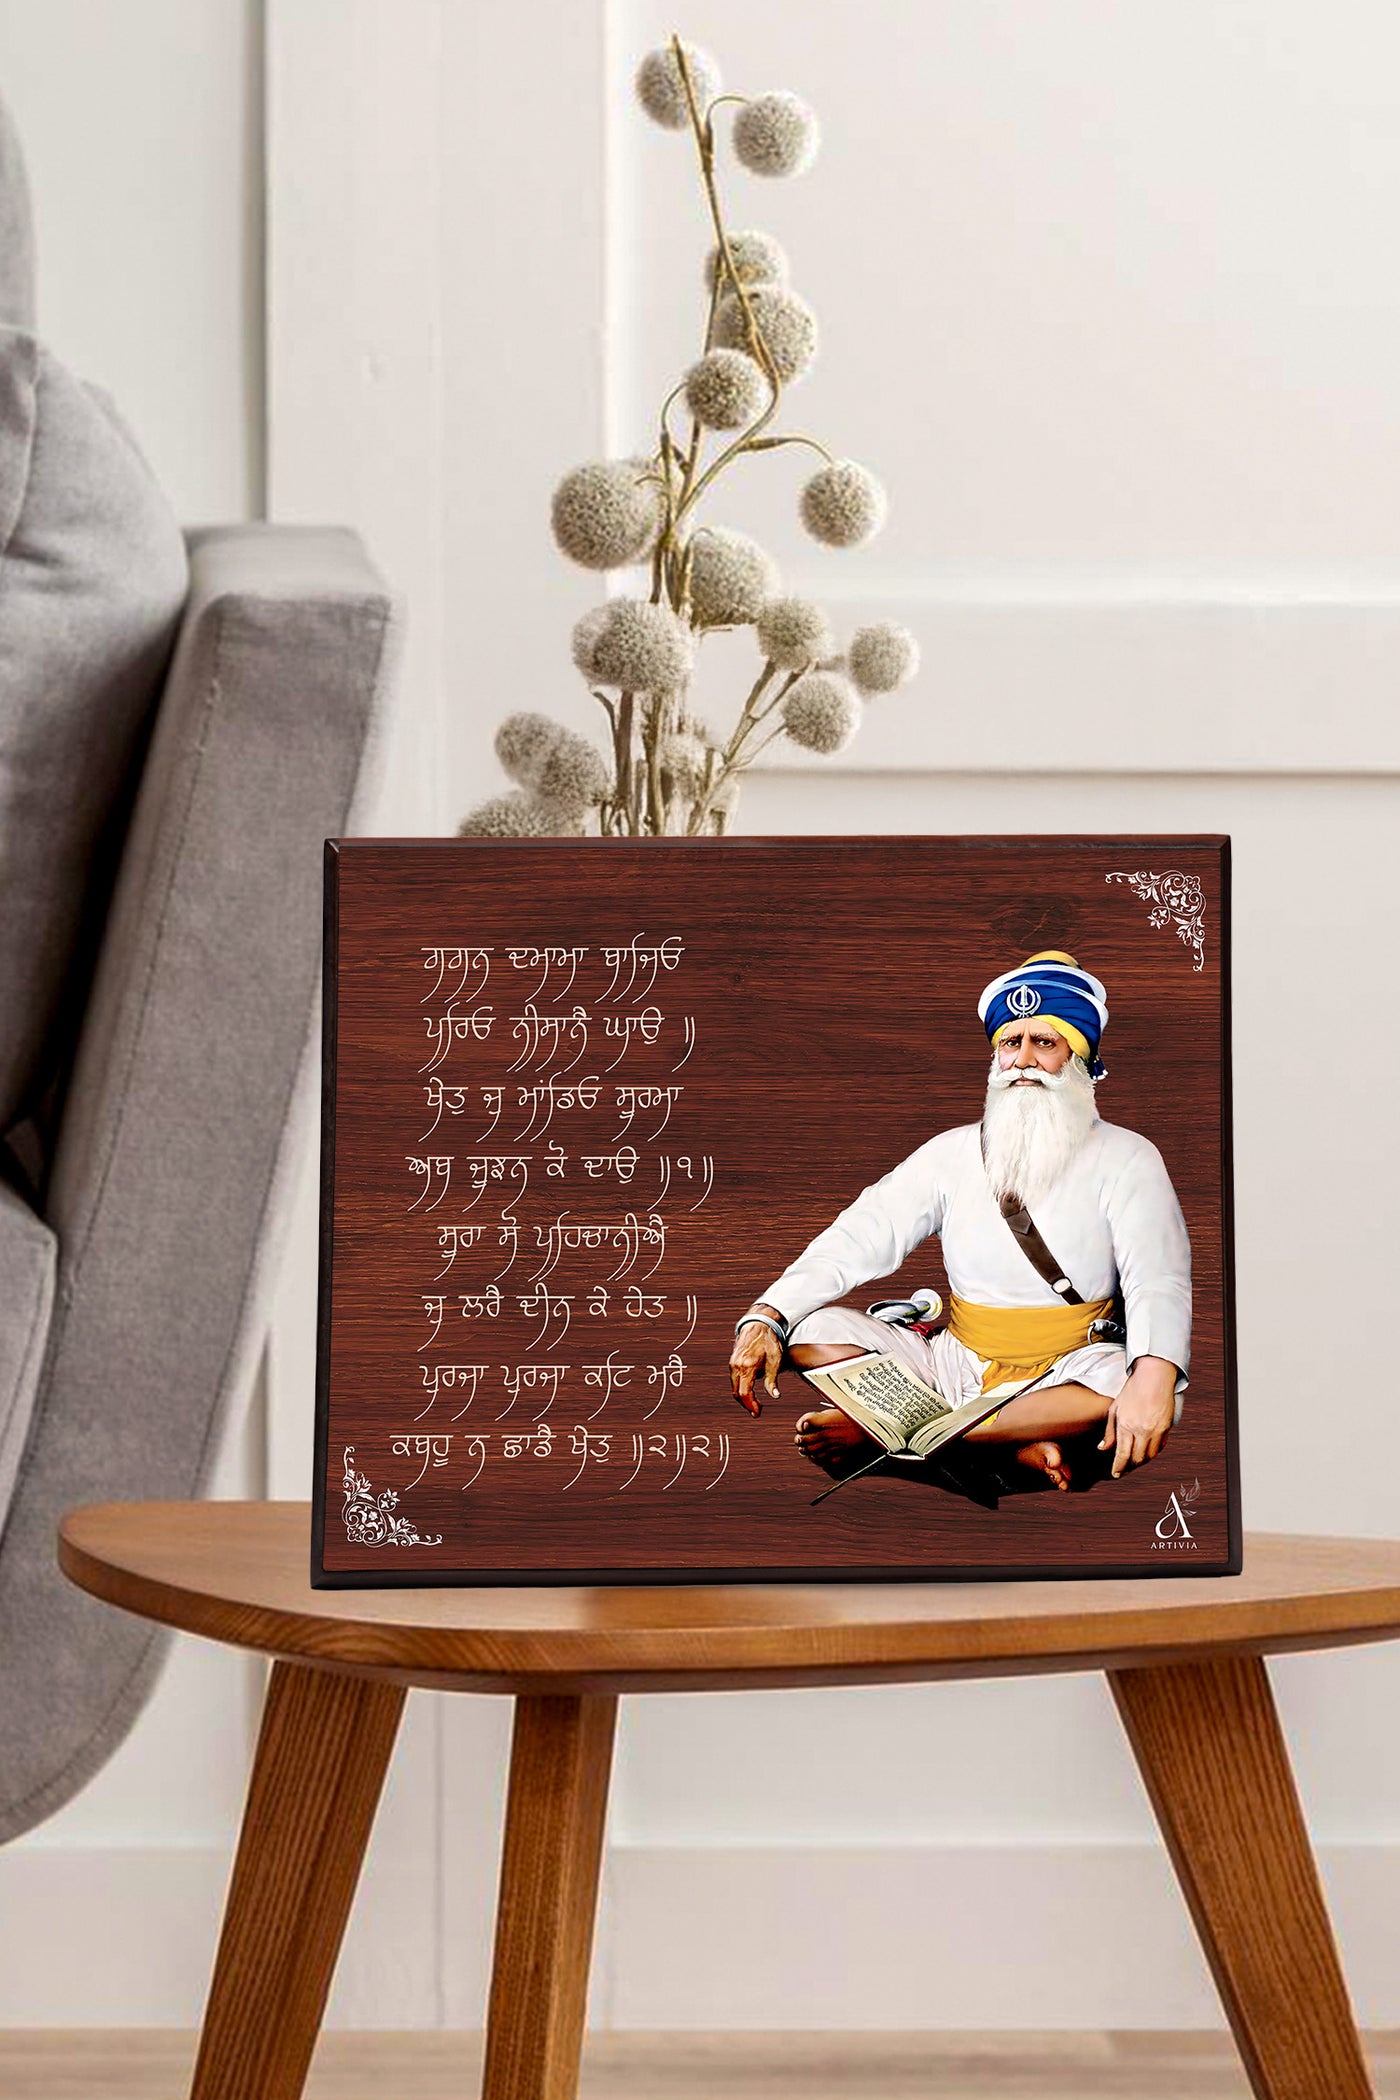 ਗਗਨ ਦਮਾਮਾ ਬਾਜਿਓ
ਪਰਿਓ ਨੀਸਾਨੈ ਘਾਉ ॥
ਖੇਤੁ ਜੁ ਮਾਂਡਿਓ ਸੂਰਮਾ
ਅਬ ਜੂਝਨ ਕੋ ਦਾਉ ॥੧॥
ਸੂਰਾ ਸੋ ਪਹਿਚਾਨੀਐ
ਜੁ ਲਰੈ ਦੀਨ ਕੇ ਹੇਤ ॥
ਪੁਰਜਾ ਪੁਰਜਾ ਕਟਿ ਮਰੈ
ਕਬਹੂ ਨ ਛਾਡੈ ਖੇਤੁ ॥੨॥੨॥
ARTIVIA